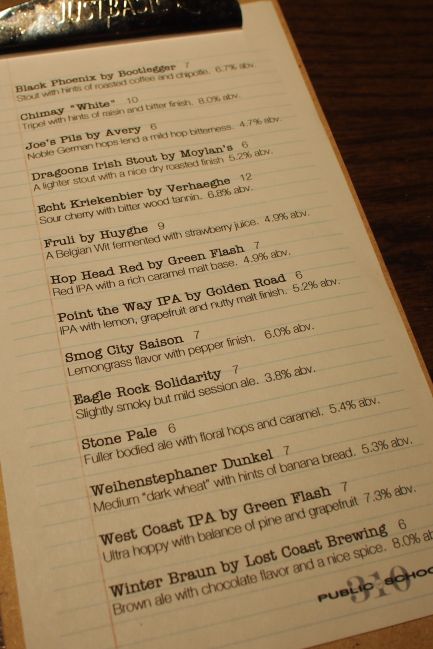 JUST BASIC
Black Phoenix by Bootlegger 7
Stout with hints of roasted coffee and chipotle. 6.7% abv.
Chimay "White" 10
Tripel with hints of raisin and bitter finish. 8.0% abv.
Joe's Pils by Avery 6
Noble German hops lend a mild hop bitterness. 4.7% abv.
Dragoons Irish Stout by Moylan's 6
A lighter stout with a nice dry roasted finish 5.2% abv.
Echt Kriekenbier by Verhaeghe 12
Sour cherry with bitter wood tannin. 6.8% abv.
Fruli by Huyghe 9
A Belgian Wit fermented with strawberry juice. 4.9% abv.
Hop Head Red by Green Flash 7
Red IPA with a rich caramel malt base. 4.9% abv.
Point the Way IPA by Golden Road 6
IPA with lemon, grapefruit and nutty malt finish. 5.2% abv.
Smog City Saison 7
Lemongrass flavor with pepper finish. 6.0% abv.
Eagle Rock Solidarity 7
Slightly smoky but mild session ale. 3.8% abv.
Stone Pale 6
Fuller bodied ale with floral hops and caramel. 5.4% abv.
Weihenstephaner Dunkel 7
Medium "dark wheat" with hints of banana bread. 5.3% abv.
West Coast IPA by Green Flash 7
Ultra hoppy with balance of pine and grapefruit 7.3% abv.
Winter Braun by Lost Coast Brewing 6
Brown ale with chocolate flavor and a nice spice. 8.0% ab
310
PUBLIC SCHOO